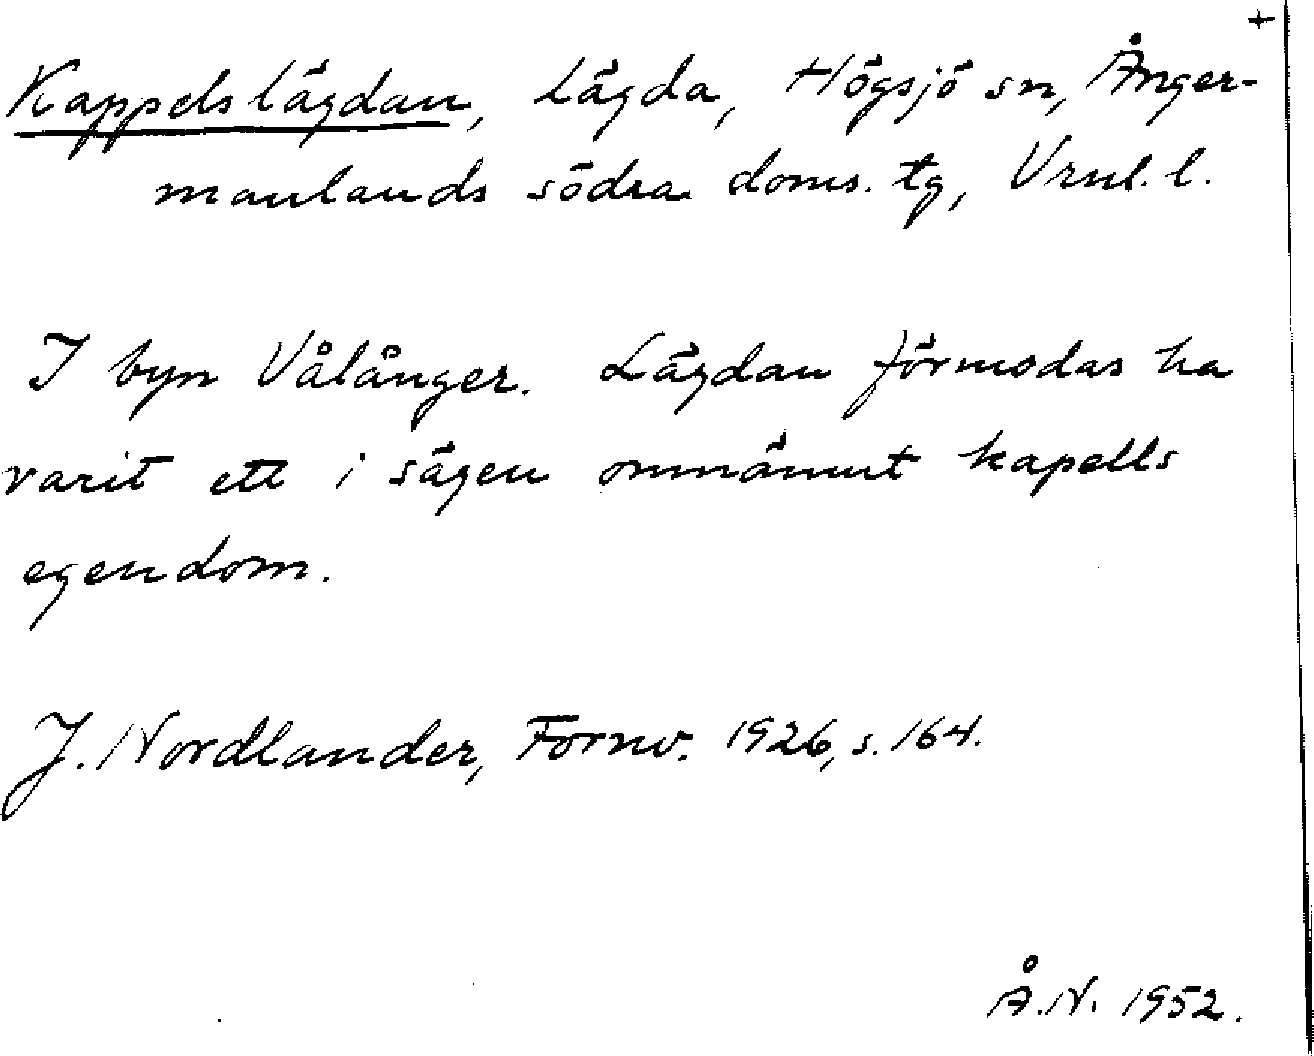 +
Kappelslägdan, Lägda, Högsjö sn, Ånger-
manlands södra doms. tg, Vrnl. l.
I byn Vålånger. Lägdan förmodas ha
varit ett i sägen omnämnt kapells
egendom.
J. Nordlander, Fornv. 1926, s. 164.
Å.N. 1952.